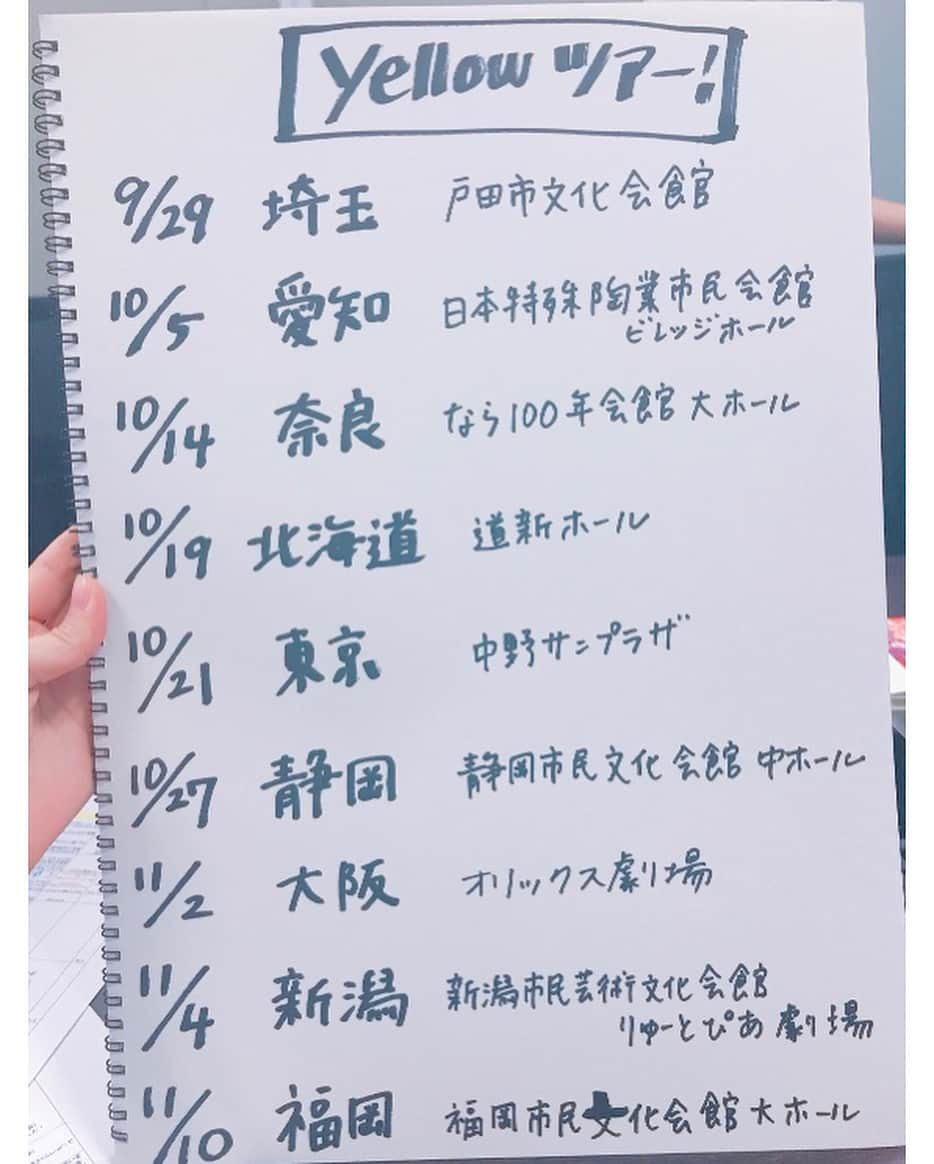 Yellow ツアー!
9/29 埼玉 戸田市文化会館
10/5 愛知 日本特殊陶業市民会館
ビレッジホール
10/14 奈良 なら100年会館 大ホール
10/19 北海道 道新ホール
10/21 東京 中野サンプラザ
10/27 静岡 静岡市民文化会館 中ホール
11/2 大阪 オリックス劇場
11/4 新潟 新潟市民芸術文化会館
りゅーとぴあ 劇場
11/10 福岡 福岡市民文化会館 大ホール